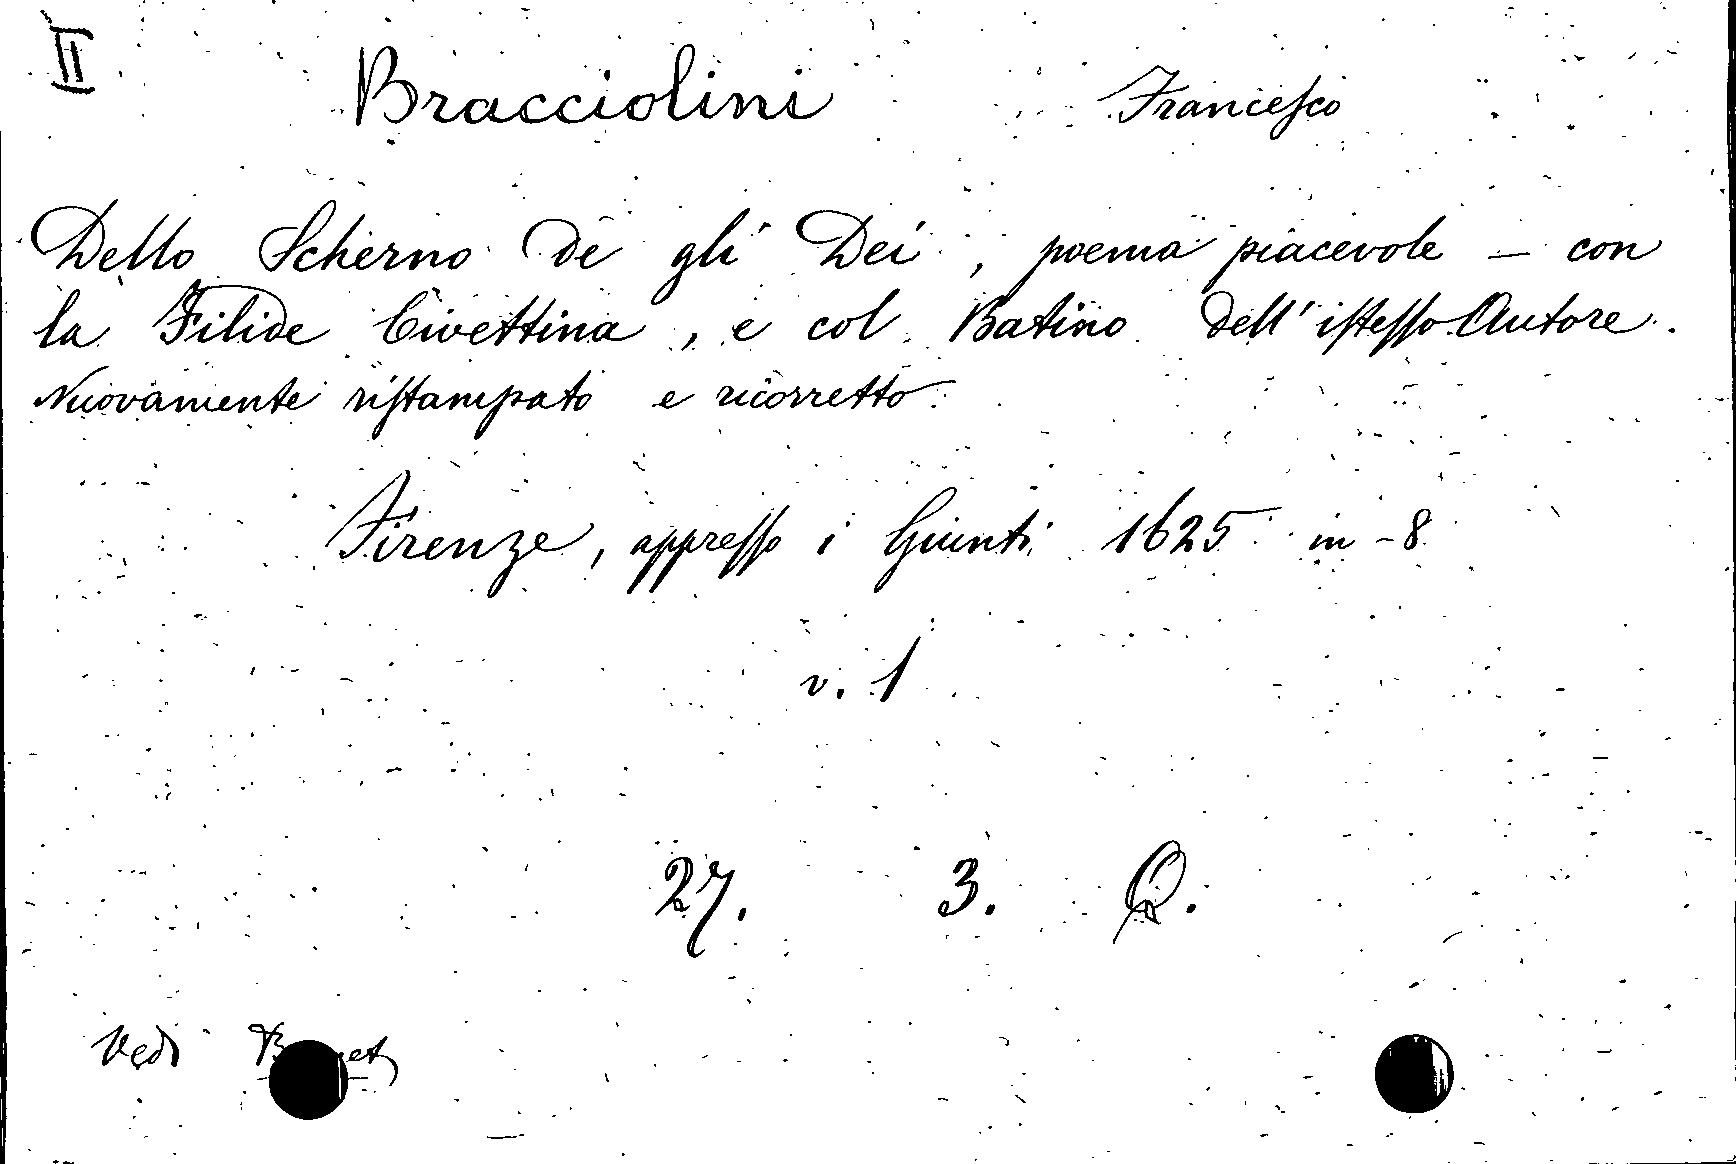 II
Bracciolini Francesco
Dello Scherno de gli Dei, poema piacevole – con
la Filide Civettina, e col Batino dell' istesso Autore.
Nuovamente ristampato e ricorretto.
Firenze, appresso i Giunti 1625 in-8
v. 1
27. 3. Q.
Vedi